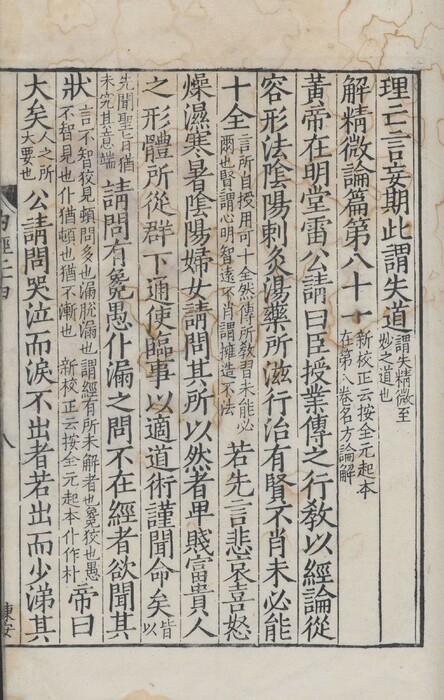 理亡言妄期此謂失道謂失精微至妙之道也
解精微論篇第八十一新校正云按全元起本在第八卷名方論解
黃帝在明堂雷公請曰臣授業傳之行教以經論從
容形法陰陽刺灸湯藥所滋行治有賢不肖未必能
十全言所自授用可十全然傳所教習未能必爾也賢謂心明智遠不肖謂擁造不法若先言悲哀喜怒
燥濕寒暑陰陽婦女請問其所以然者卑賤富貴人
之形體所從群下通使臨事以適道術謹聞命矣皆以
先聞聖旨猶未究其意端請問有毚愚仆漏之問不在經者欲聞其
狀言不智狡見頓問多也漏脫漏也謂經有所未解者也毚狡也愚不智見也仆猶頓也猶不漸也新校正云按全元起本仆作朴帝曰
大矣人之所大要也公請問哭泣而淚不出者若出而少涕其
八